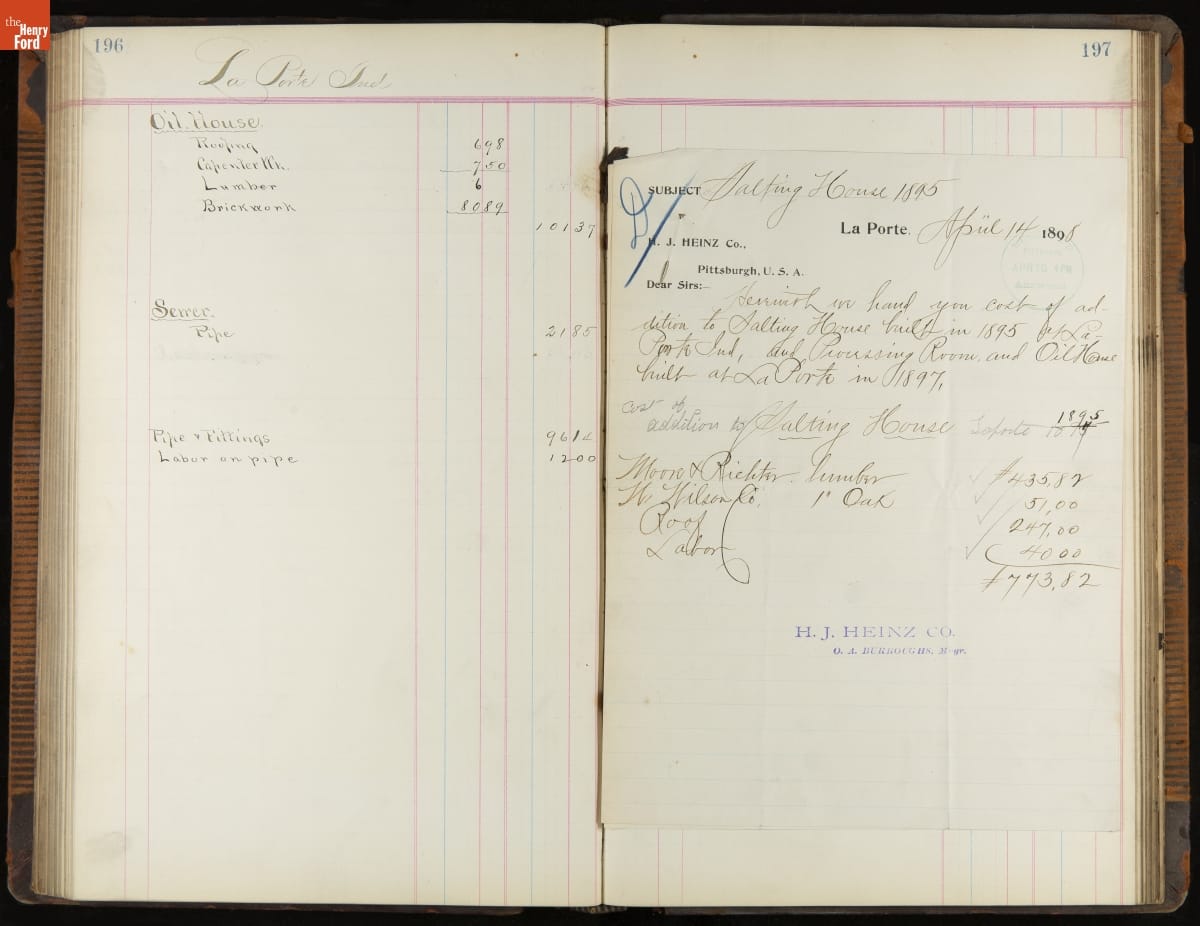 the
Henry
Ford
196
La Porte Ind
Oil House.
Roofing 698
Carpenter Wk. 750
Lumber 6
Brickwork 8089
10137
Sewer.
Pipe 2185
Pipe & Fittings 9614
Labor on pipe 1200
197
SUBJECT Salting House 1895
La Porte. April 14 1898
H. J. HEINZ Co.,
Pittsburgh, U. S. A.
APR 16 4 PM
Dear Sirs:—
Herewith we hand you cost of ad-
dition to Salting House built in 1895 at La
Porte Ind, and Processing Room and Oil House
built at La Porte in 1897,
cost of
addition to Salting House Laporte 1895
Moore & Richter. lumber $435,82
W. Wilson Co. 1" Oak 51,00
Roof 247,00
Labor 40 00
$773,82
H. J. HEINZ CO.
O. A. BURROUGHS, M-gr.